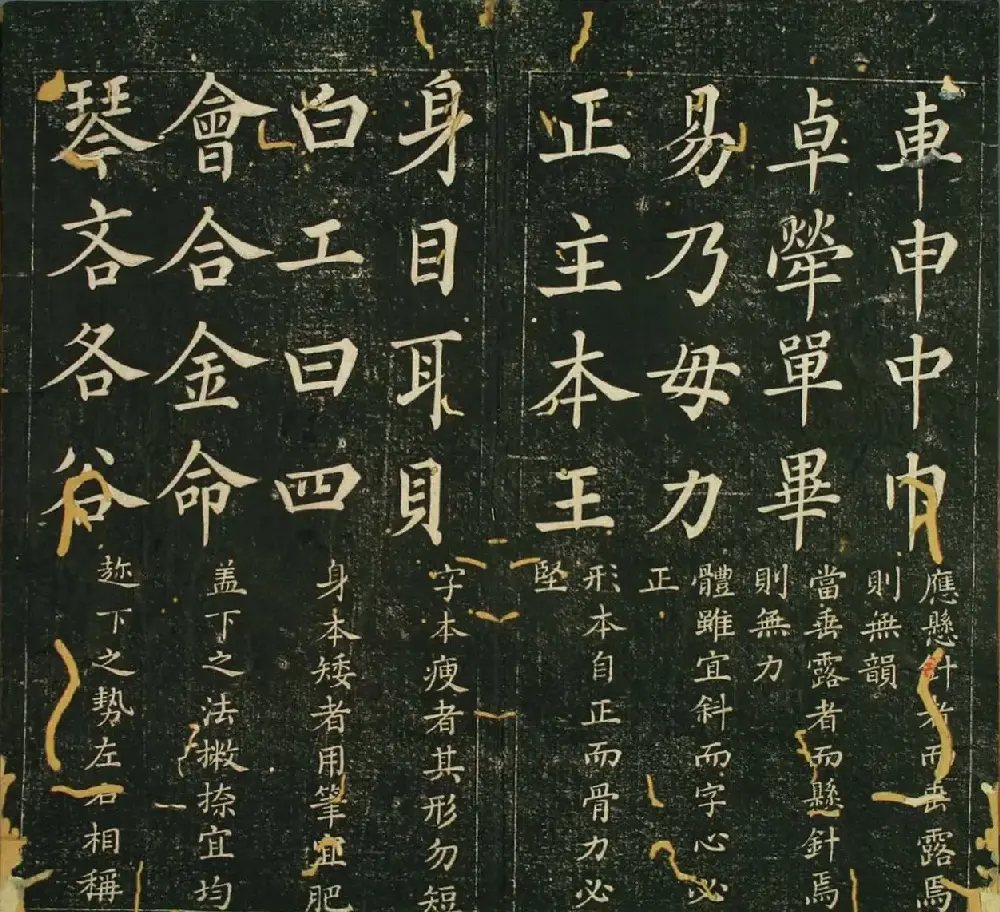 車申中巾
應懸針者而垂露焉
則無韻
卓犖單畢
當垂露者而懸針焉
則無力
易乃毋力
體雖宜斜而字心必
正
正主本王
形本自正而骨力必
堅
身目耳貝
字本瘦者其形勿短
白工曰四
身本矮者用筆宜肥
會合金命
盖下之法撇捺宜均
琴吝各谷
下之勢左右相稱